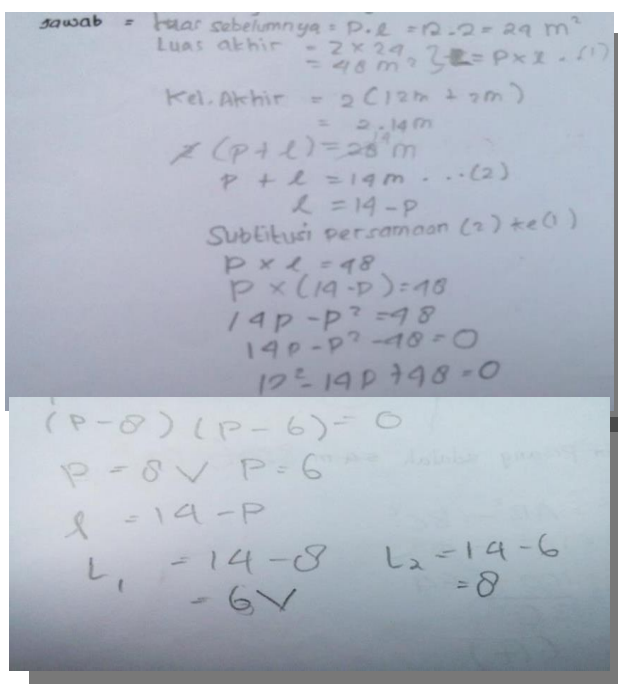 Jawab = Luas sebelumnya = P.l = 12.2 = 24 m²
Luas akhir = 2 x 24
= 48 m² } L = P x l . (1)
Kel. Akhir = 2 (12m + 2m)
= 2.14m
2 (P+l) = 28 14 m
P + l = 14m ... (2)
l = 14 - P
Subtitusi persamaan (2) ke (1)
P x l = 48
P x (14-P) = 48
14P - P² = 48
14P - P² - 48 = 0
P² - 14P + 48 = 0
(P-8) (P-6) = 0
P = 8 V P = 6
l = 14 - P
L₁ = 14 - 8 L₂ = 14 - 6
= 6 V = 8